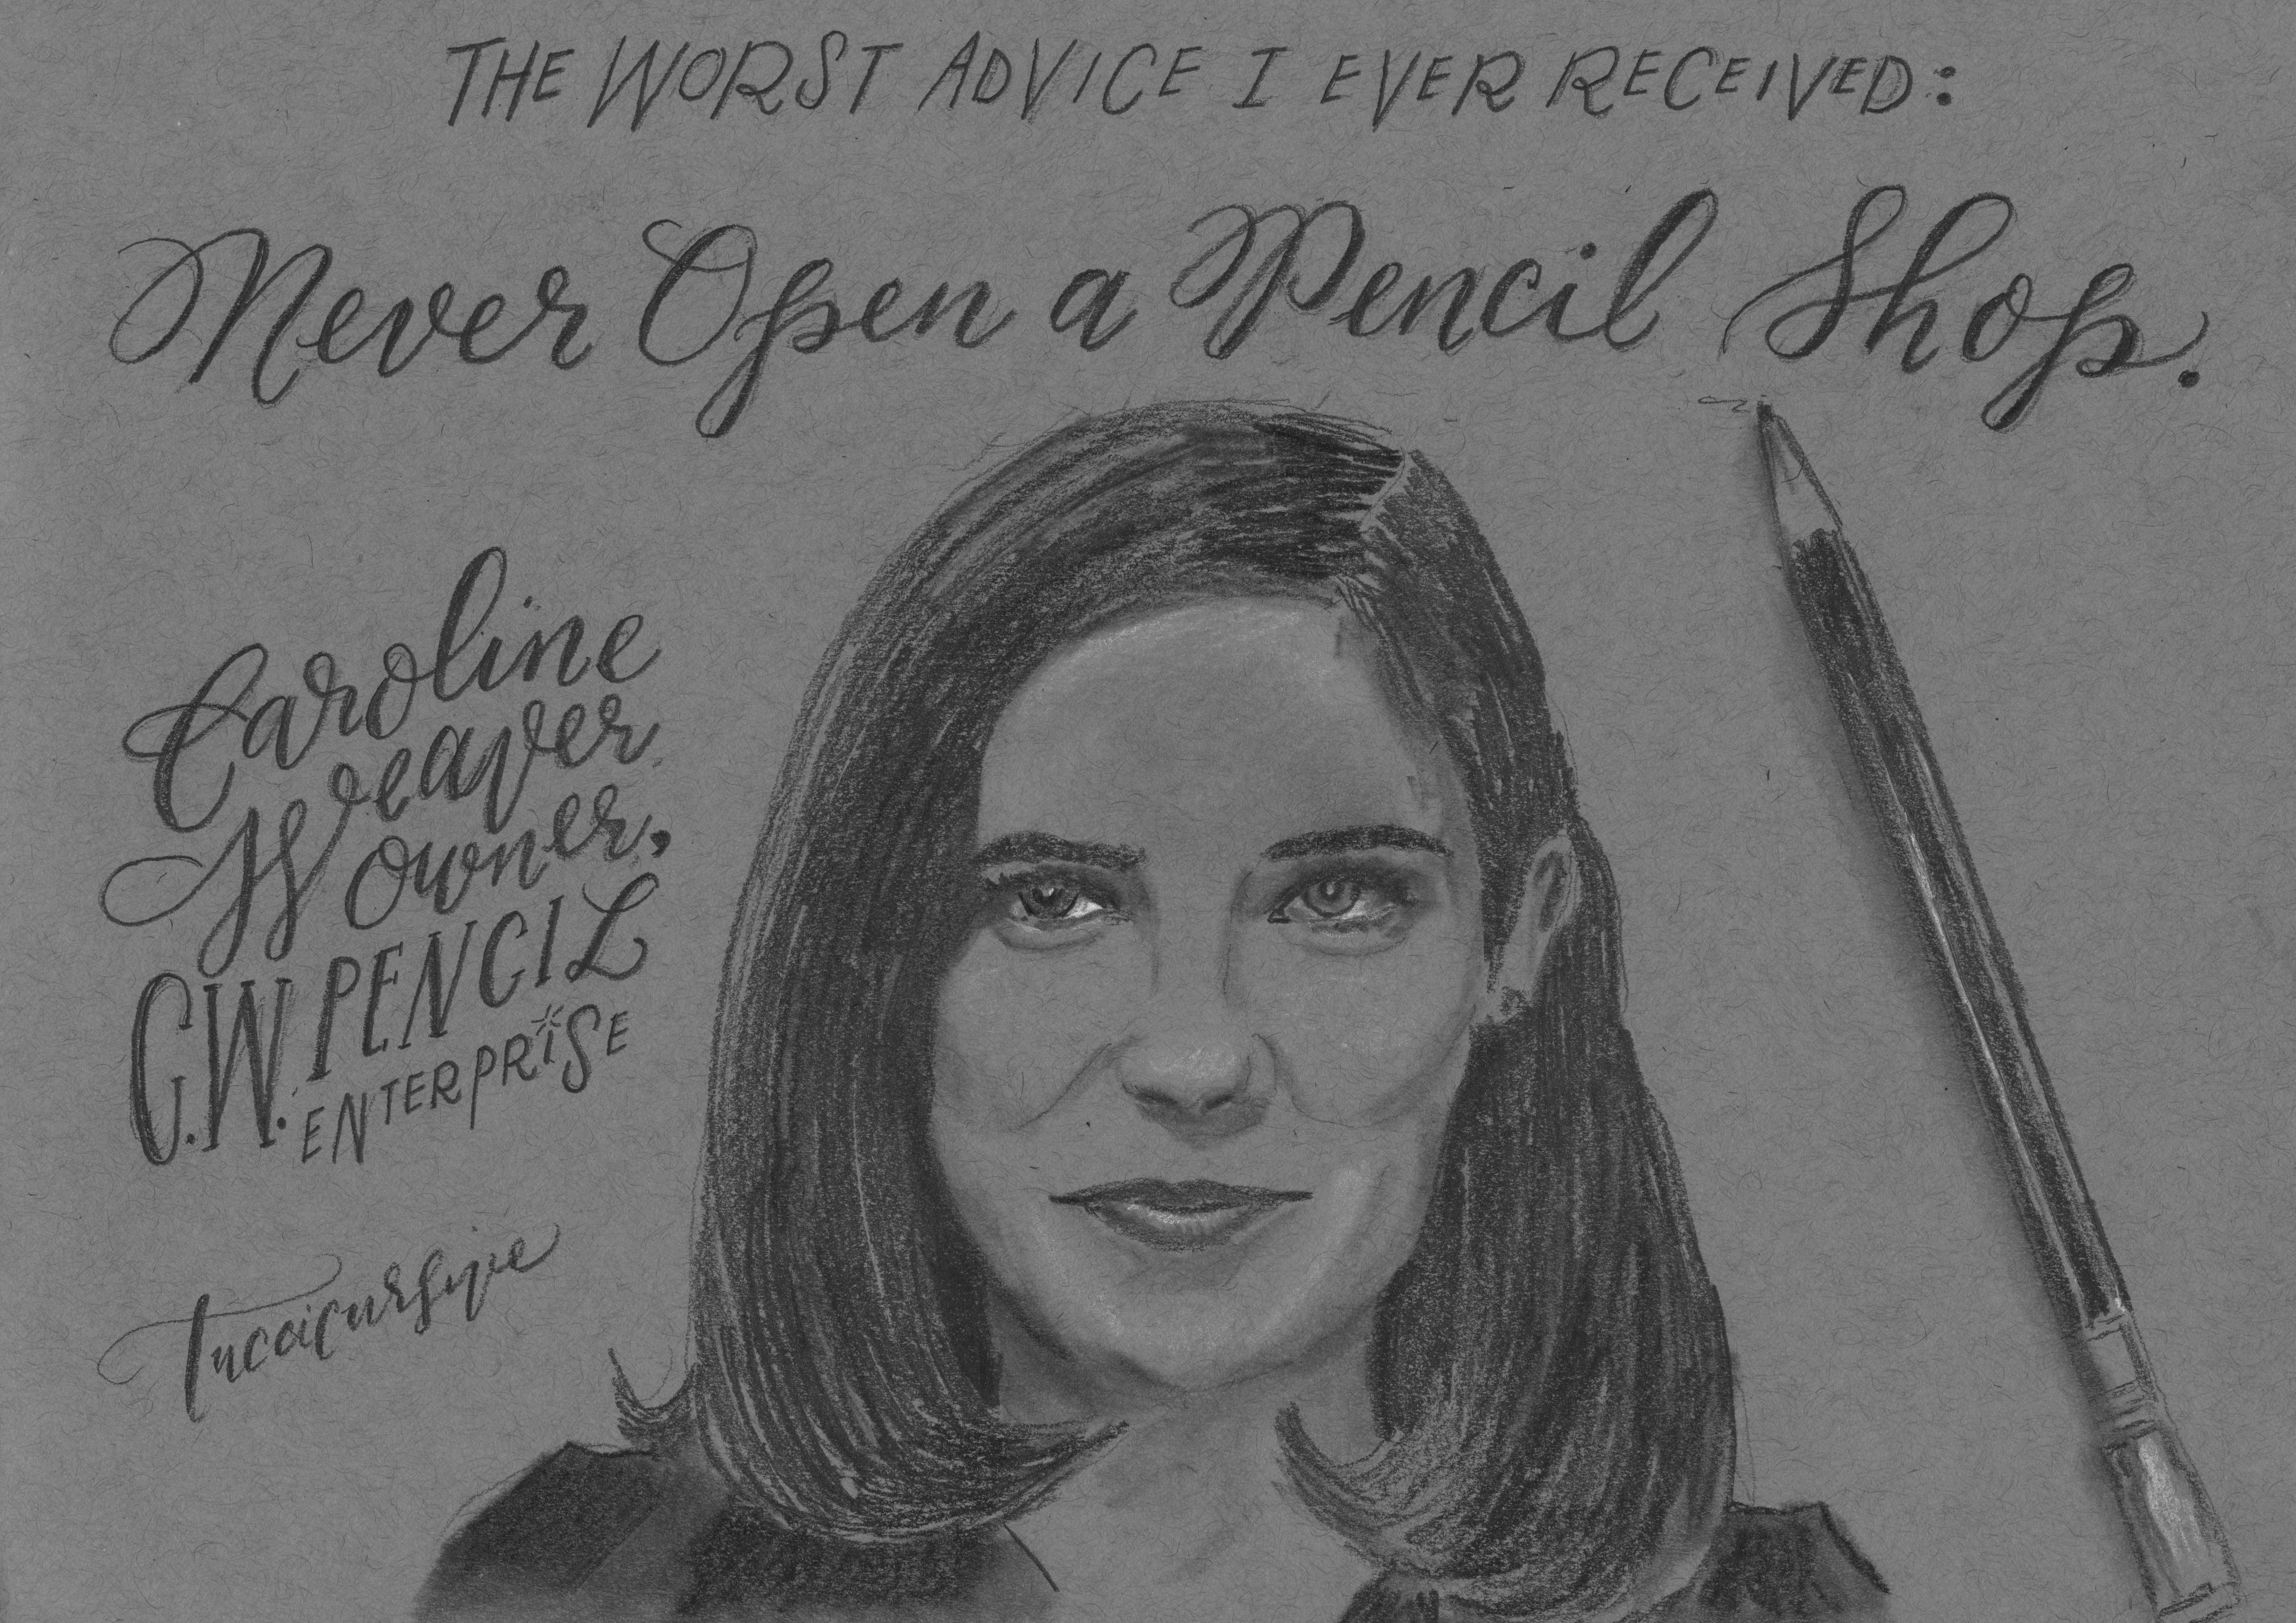 THE WORST ADVICE I EVER RECEIVED:
Never Open a Pencil Shop.
Caroline
Weaver
owner,
C.W. PENCIL
ENTERPRISE